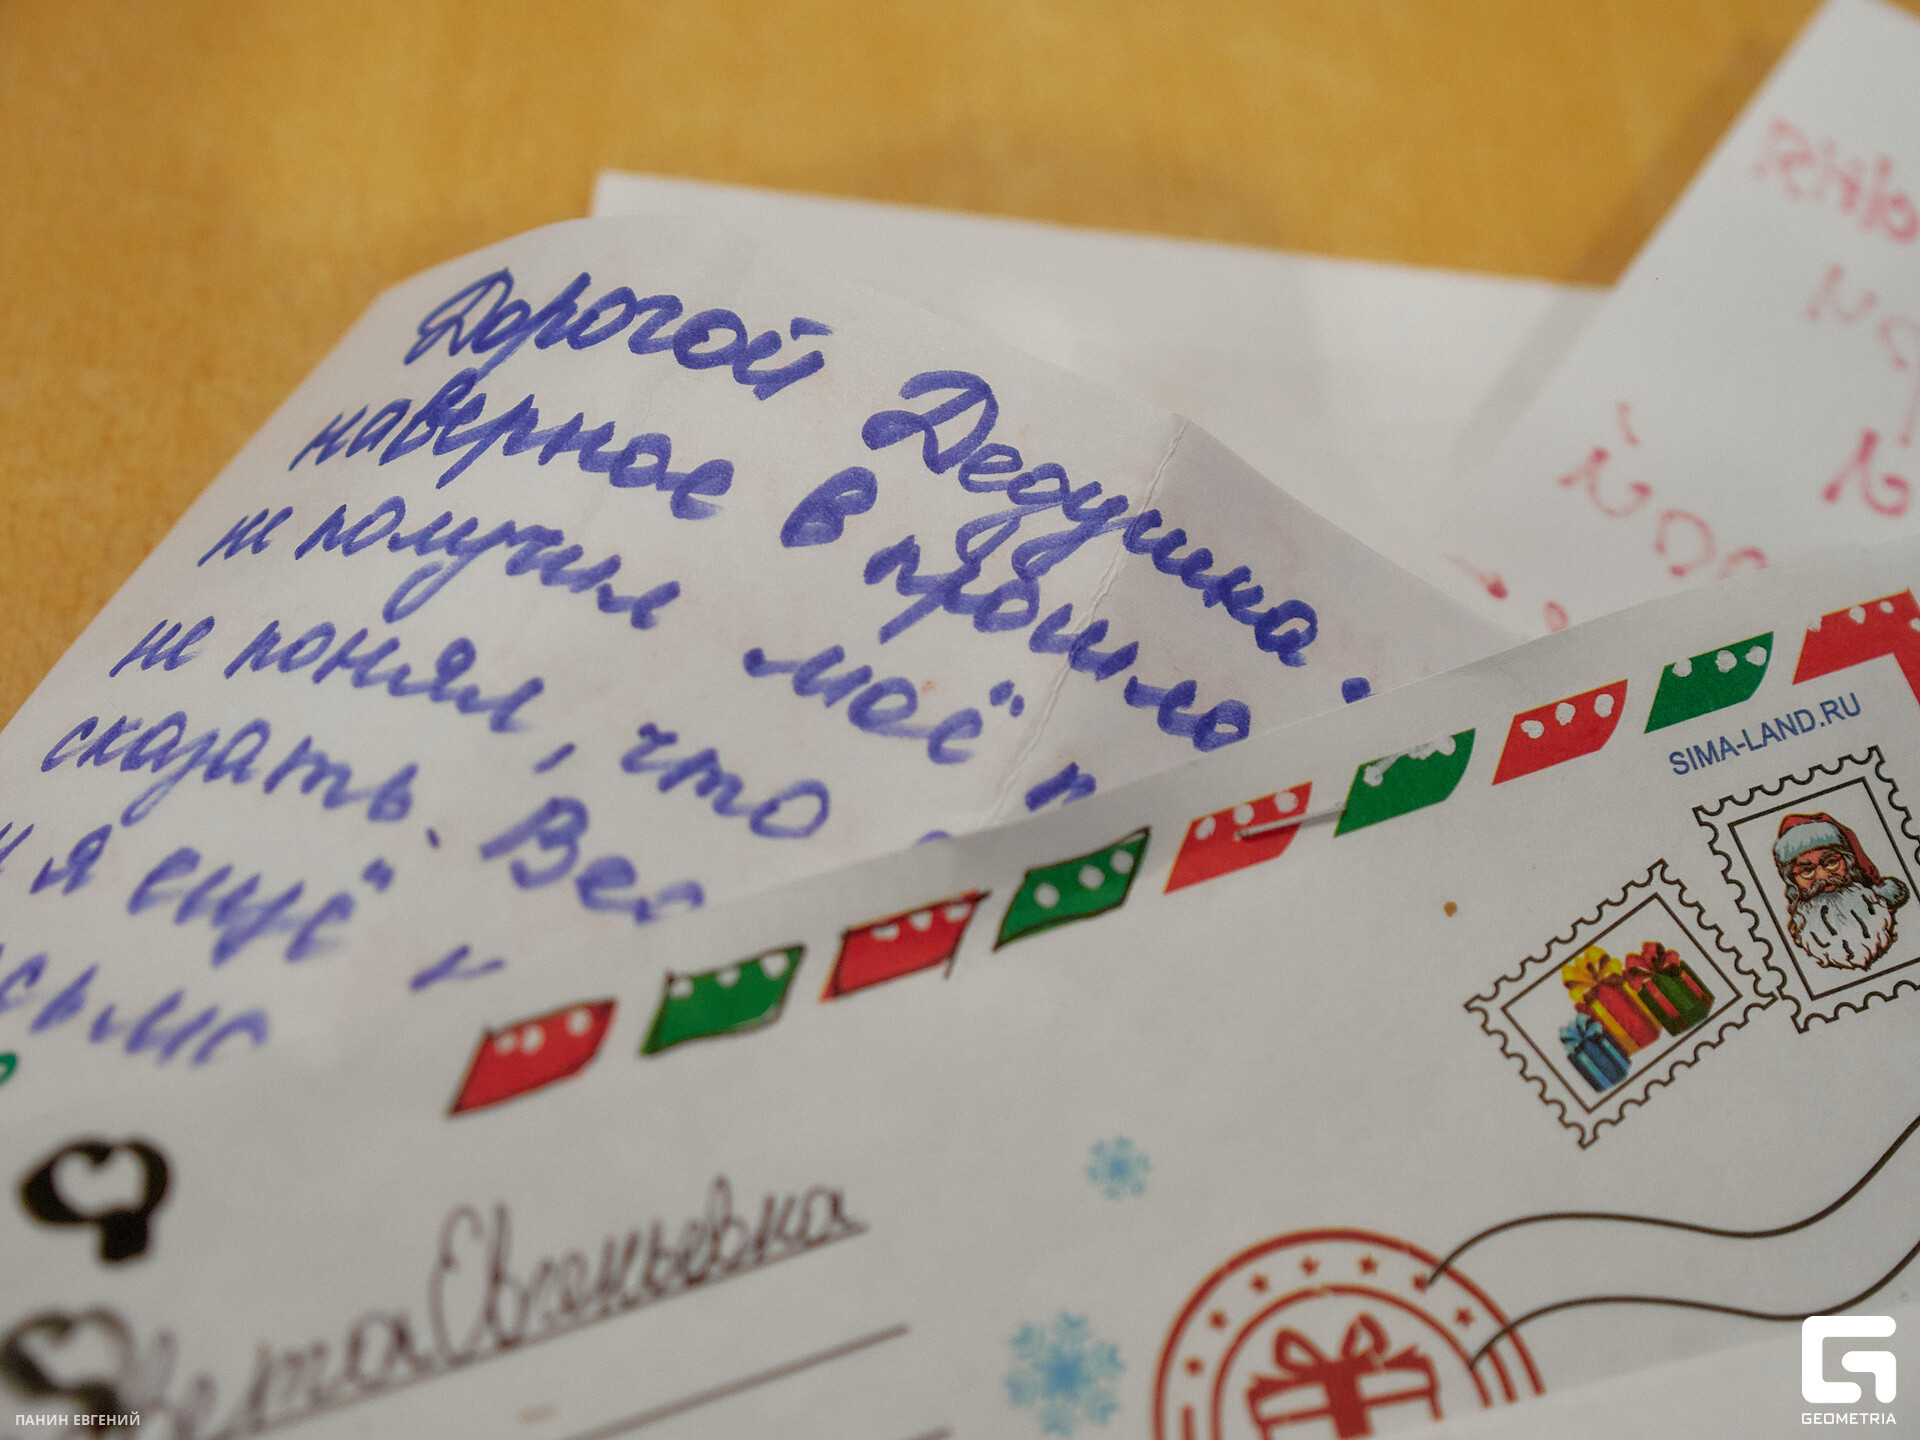 Дорогой Дедушка.
наверное в прошло
не получил моё п
не понял, что
сказать. Вес
и я ещё
сьмо
SIMA-LAND.RU
Евгеньевна
ПАНИН ЕВГЕНИЙ
GEOMETRIA